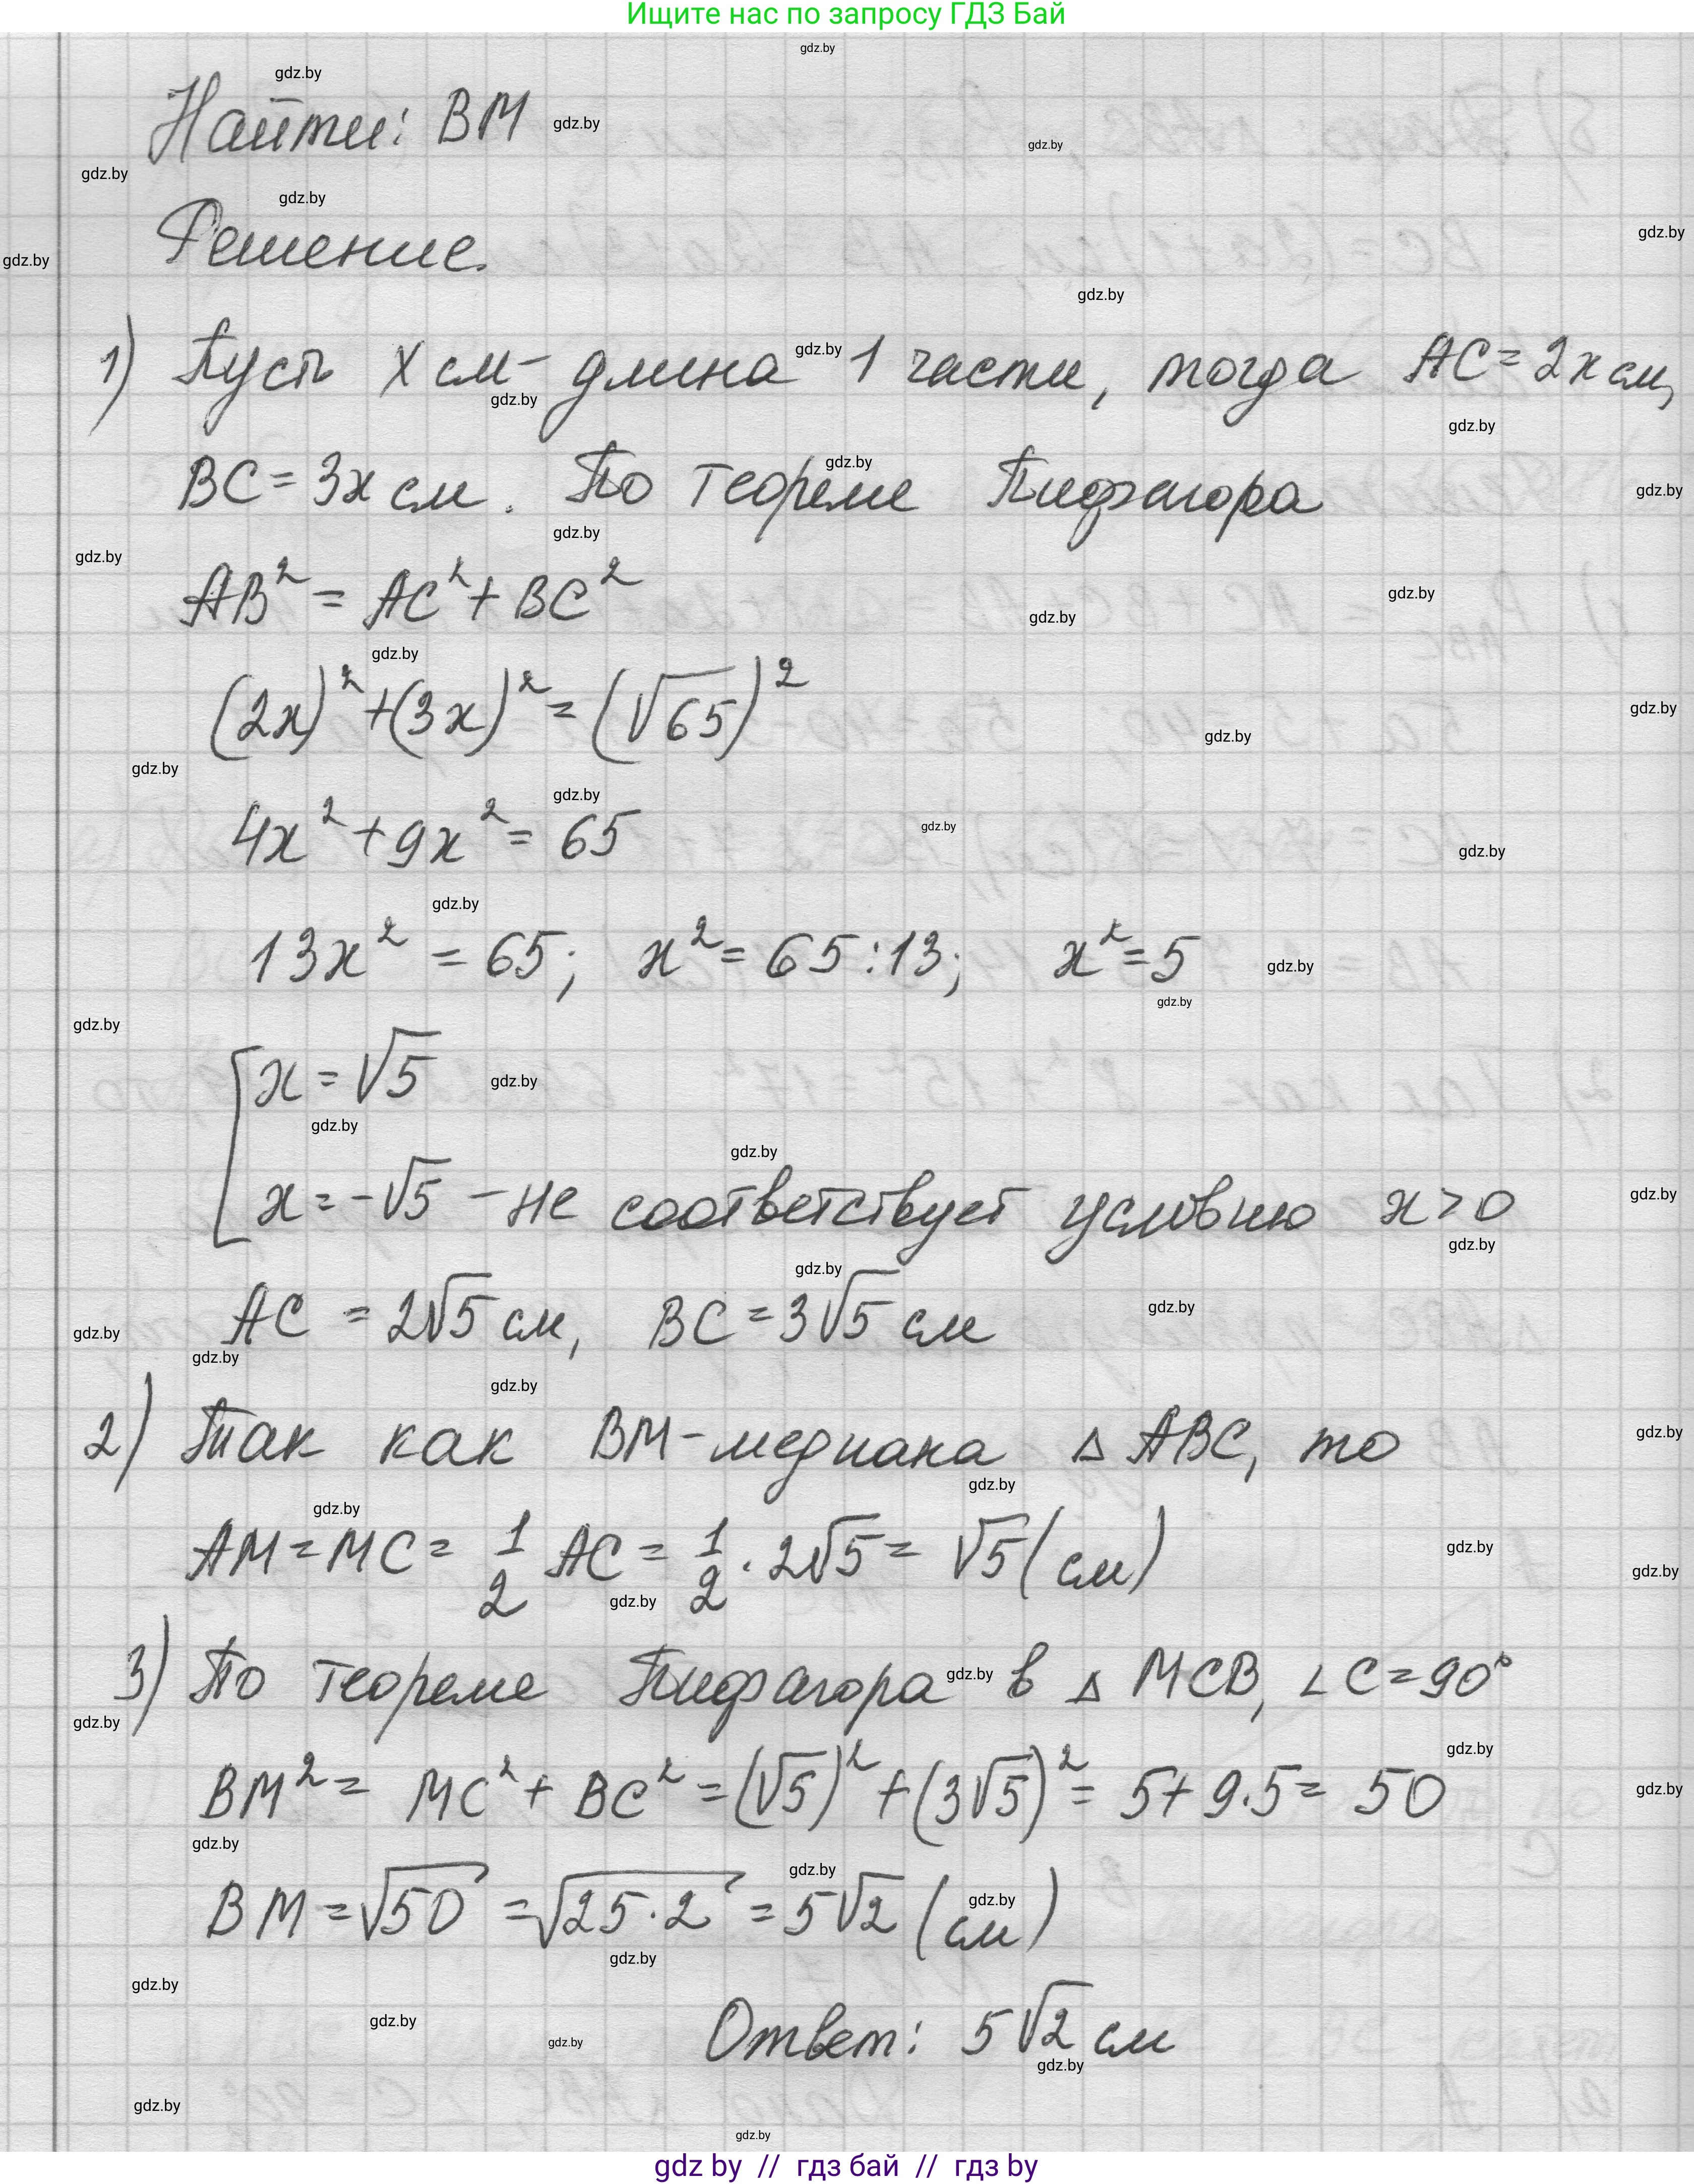 Ищите нас по запросу ГДЗ Бай
Найти: BM
Решение.
1) Пусть x см - длина 1 части, тогда AC = 2x см,
BC = 3x см. По теореме Пифагора
AB² = AC² + BC²
(2x)² + (3x)² = (√65)²
4x² + 9x² = 65
13x² = 65; x² = 65 : 13; x² = 5
[ x = √5
x = -√5 - не соответствует условию x > 0
AC = 2√5 см, BC = 3√5 см
2) Так как BM - медиана △ ABC, то
AM = MC = 1/2 AC = 1/2 · 2√5 = √5 (см)
3) По теореме Пифагора в △ MCB, ∠ C = 90°
BM² = MC² + BC² = (√5)² + (3√5)² = 5 + 9·5 = 50
BM = √50 = √25·2 = 5√2 (см)
Ответ: 5√2 см
gdz by // гдз бай // гдз by